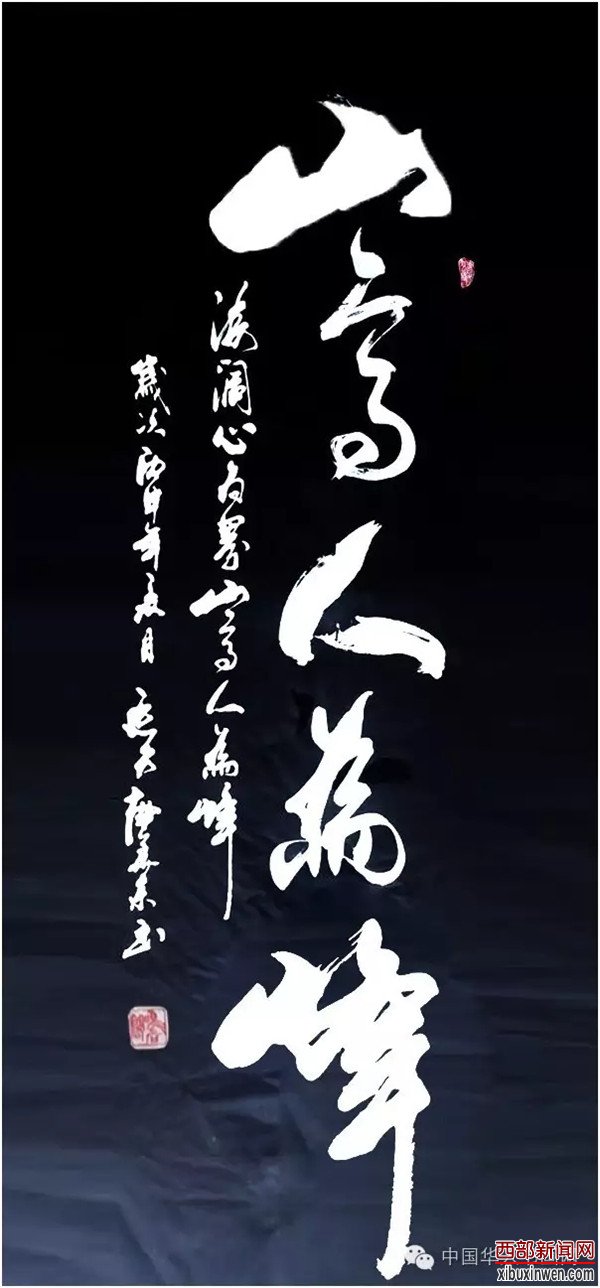 山高人為峰
海闊心为界山高人為峰
歲次丙申年夏月
中国华
西部新闻网
xibuxinwen.com